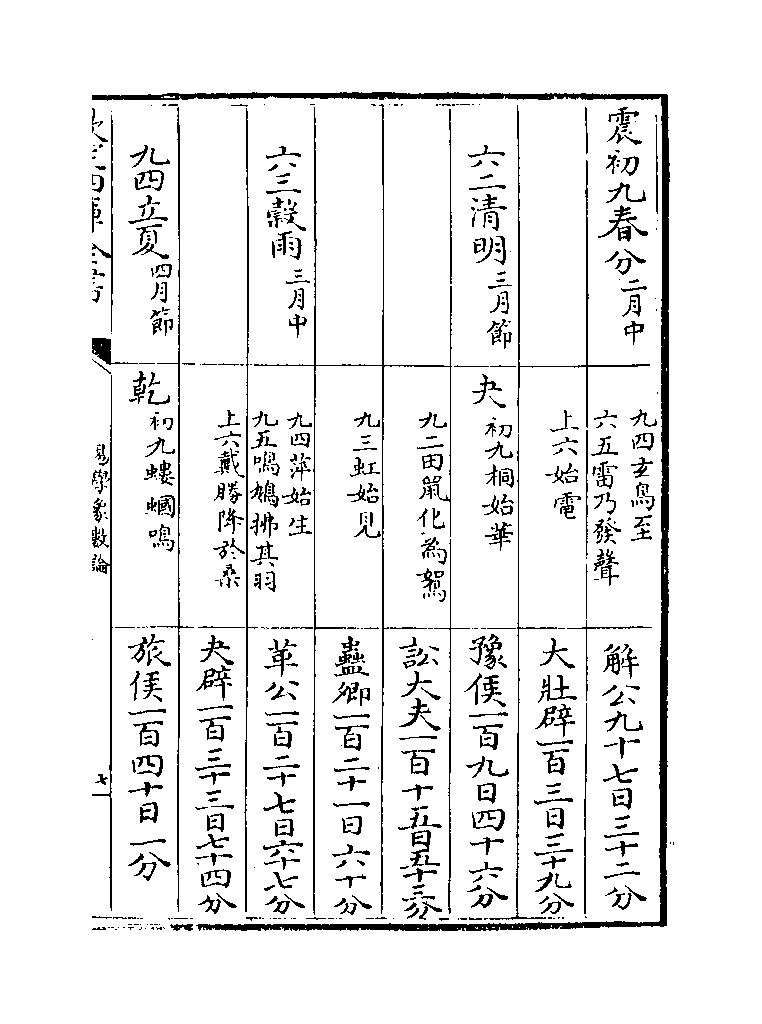 震初九春分二月中
九四玄鳥至
六五雷乃發聲
解公九十七日三十二分
上六始電
大壯辟一百三日三十九分
六二清明三月節
夬初九桐始華
豫侯一百九日四十六分
九二田鼠化為鴽
訟大夫一百十五日五十三分
九三虹始見
蠱卿一百二十一日六十分
六三穀雨三月中
九四萍始生
九五鳴鳩拂其羽
革公一百二十七日六十七分
上六戴勝降於桑
夬辟一百三十三日七十四分
九四立夏四月節
乾初九螻蟈鳴
旅侯一百四十日一分
欽定四庫全書
易學象數論
七